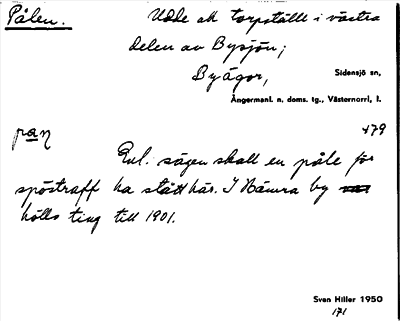 Pålen. Udde ell torpställe i västra
delen av Bysjön;
Byägor,
Sidensjö sn,
Ångermanl. n. doms. tg., Västernorrl, l.
pan
479
Enl. sägen skall en påle för
spöstraff ha stått här. I Nämra by
hölls ting till 1901.
Sven Hiller 1950
171